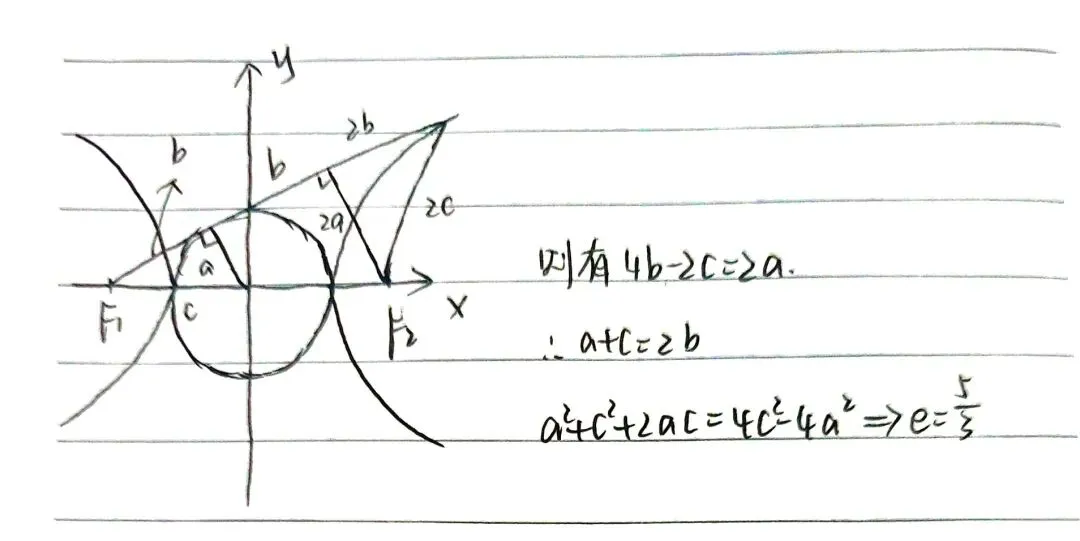 y
2b
b
b
2a
2c
a
F₁
c
F₂
x
则有 4b-2c=2a.
∴ a+c=2b
a²+c²+2ac=4c²-4a² ⇒ e=5/3